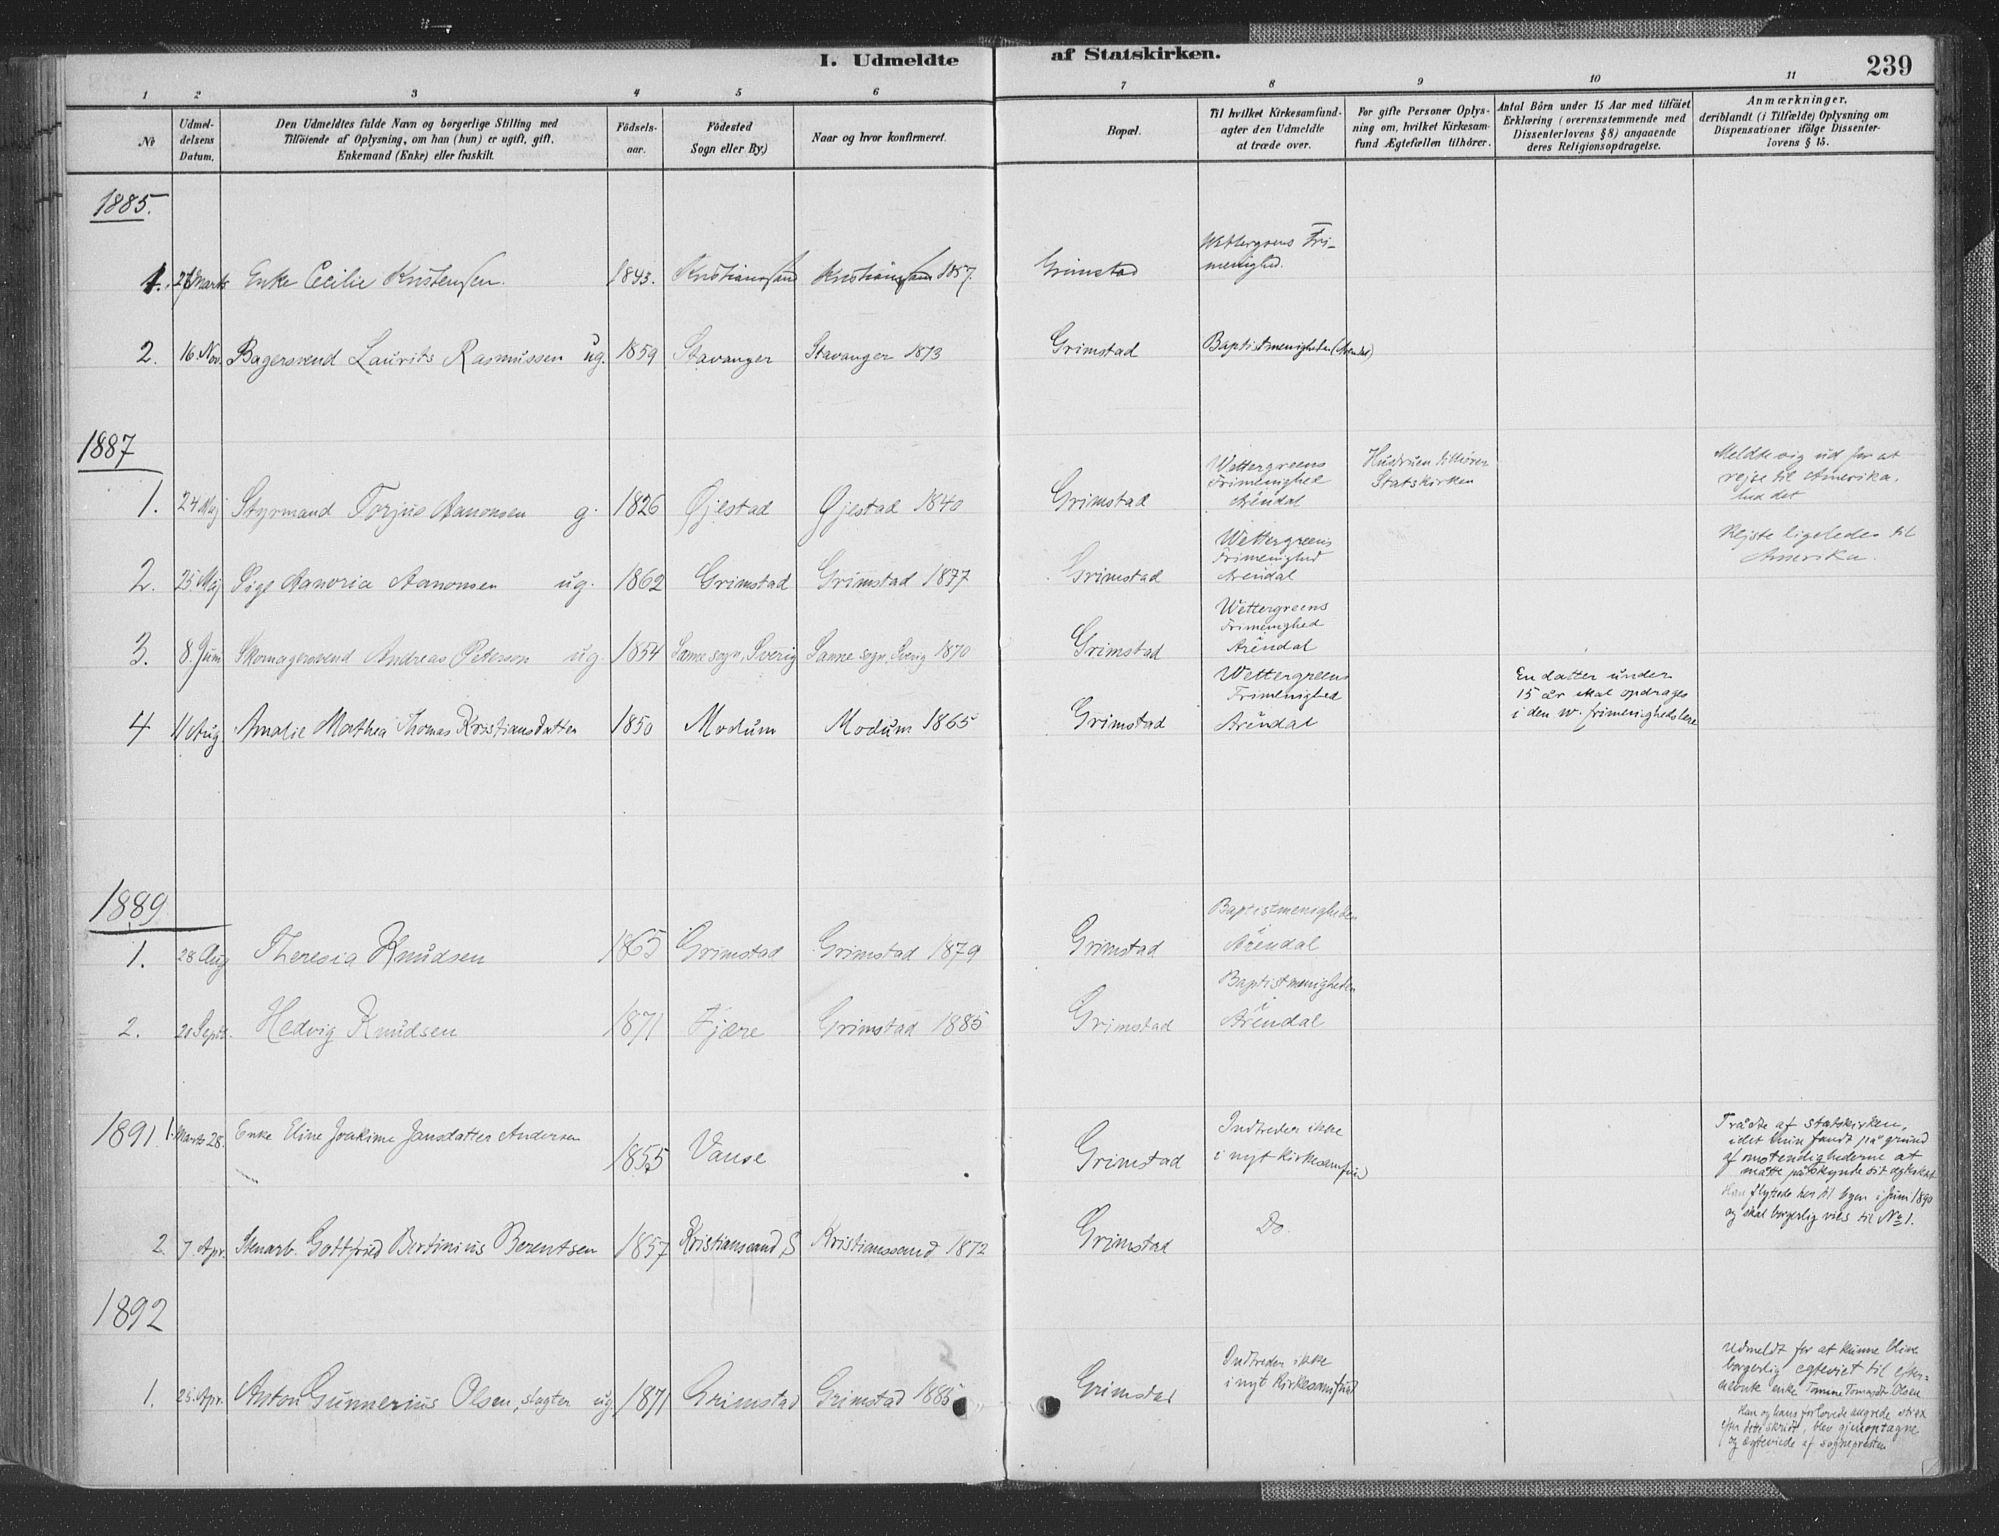 I. Udmeldte af Statskirken. 239
1 2 3 4 5 6 7 8 9 10 11
No
Udmel-
delsens
Datum.
Den Udmeldtes fulde Navn og borgerlige Stilling med
Tilföiende af Oplysning, om han (hun) er ugift, gift,
Enkemand (Enke) eller fraskilt.
Födsels-
aar.
Födested
Sogn eller By.)
Naar og hvor konfirmeret.
Bopæl.
Til hvilket Kirkesamfund-
agter den Udmeldte
at træde over.
For gifte Personer Oplys-
ning om, hvilket Kirkesam-
fund Ægtefællen tilhörer.
Antal Börn under 15 Aar med tilföiet
Erklæring (overensstemmende med
Dissenterlovens § 8) angaaende
deres Religionsopdragelse.
Anmærkninger,
deriblandt (i Tilfælde) Oplysning om
Dispensationer ifölge Dissenter-
lovens § 15.
1885.
1. 27 Marts Enke Cecilie Kristensen. 1843. Kristianssand Kristianssand 1857. Grimstad
Wettergreens Fri-
menighed.
2. 16. Nov. Bagersvend Laurits Rasmussen ug. 1859 Stavanger Stavanger 1873 Grimstad Baptistmenigheden (Arendal)
1887
1. 24 Maj Styrmand Torjus Aanonsen g. 1826 Øjestad Øjestad 1840 Grimstad
Wettergreens
Frimenighed
Arendal
Hustruen tilhører
Statskirken
Meldte sig ud for at
rejse til Amerika.
2. 25. Maj Aanonsen ug. 1862 Grimstad Grimstad 1877 Grimstad
Wettergreens
Frimenighed
Arendal
Rejste ligeledes til
Amerika.
3. 8. Juni Skomagersvend Andreas Peterson ug. 1854 Sanne sogn, Sverig Sanne sogn, Sverig 1870 Grimstad
Wettergreens
Frimenighed
Arendal
4 11 Aug Amalie Mathea Thomas Kristiansdatter 1850 Modum Modum 1865 Grimstad
Wettergreens
Frimenighed
Arendal
En datter under
15 år skal opdrages
i den w. frimenigheds lære
1889
1. 28 Aug Theresia Knudsen 1865 Grimstad Grimstad 1879 Grimstad
Baptistmenigheden
i
Arendal
2. Sept. Hedvig Knudsen 1871 Fjære Grimstad 1885 Grimstad
Baptistmenigheden
i
Arendal
1891 1. Marts 28. Enke Eline Joakime Jansdatter Andersen 1855 Vanse Grimstad
Indtreder ikke
i nyt kirkesamfund
Trådte af statskirken,
idet hun fandt på grund
af omstendighederne at
måtte påskynde sit egteskab
2. 7. Apr. Stenarb. Gottfried Bertinius Berentsen 1857 Kristianssand S Kristianssand 1872 Grimstad Do
Han flyttede her til byen i Juni 1890
og skal borgerlig vies til No 1.
1892
1. 25. Apr. Anton Gunnerius Olsen, slagter ug 1871 Grimstad Grimstad 1885 Grimstad
Indtreder ikke
i nyt kirkesamfund
Udmeldt for at kunne blive
borgerlig egteviet til
enke Olsen
Han og hans forlovede angrede
efter dette skridt, blev gjenoptagne
og ægteviede af sognepresten